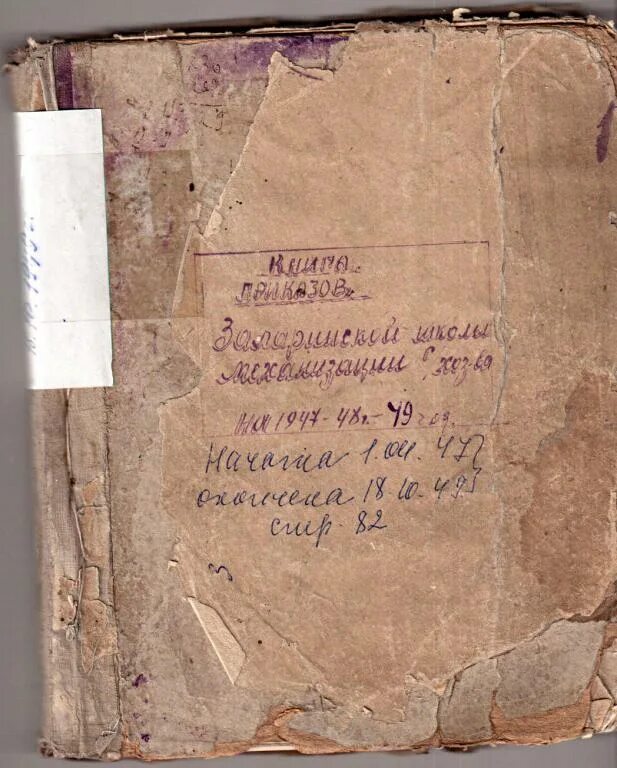 Книга
приказов
Захаринской школы
механизации с/хоз-ва
на 1947-48г.-49 год.
Начата 1.04.47г
окончена 18.10.49г
стр. 82